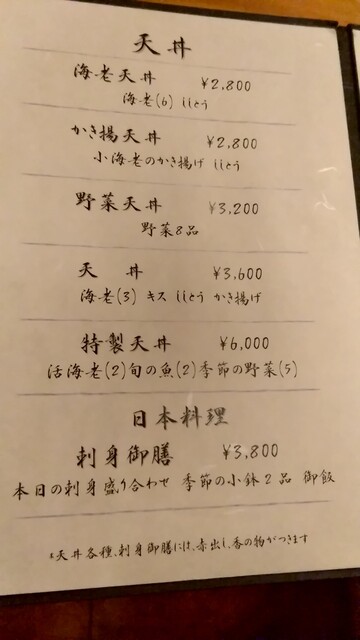 天丼
海老天丼 ¥2,800
海老(6) ししとう
かき揚天丼 ¥2,800
小海老のかき揚げ ししとう
野菜天丼 ¥3,200
野菜8品
天 丼 ¥3,600
海老(3) キス ししとう かき揚げ
特製天丼 ¥6,000
活海老(2)旬の魚(2)季節の野菜(5)
日本料理
刺身御膳 ¥3,800
本日の刺身盛り合わせ 季節の小鉢2品 御飯
*天丼各種、刺身御膳には、赤出し、香の物がつきます